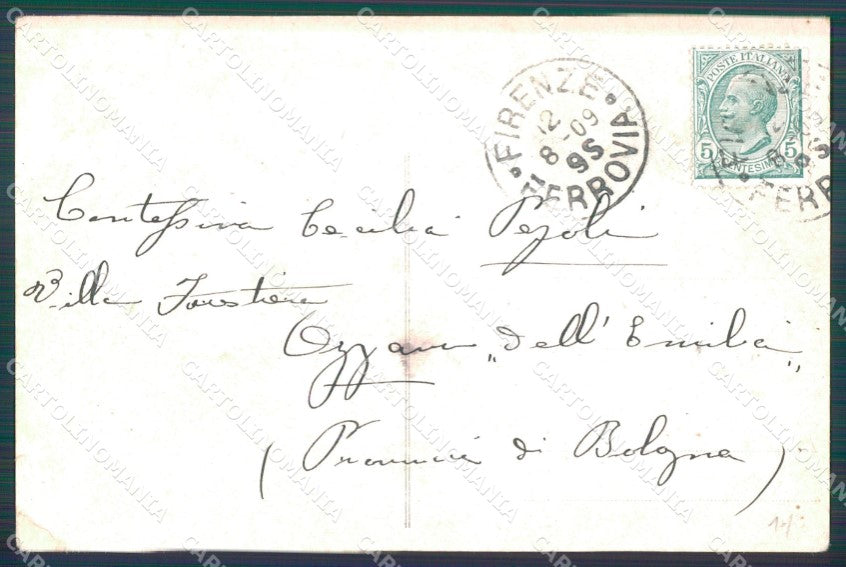 FIRENZE
FERROVIA
12 - 09
8 9S
POSTE ITALIANE
5 CENTESIMI 5
FERR
Contessina Cecilia Pepoli
Villa
Ozzano "dell'Emilia"
(Provincia di Bologna)
CARTOLINOMANIA